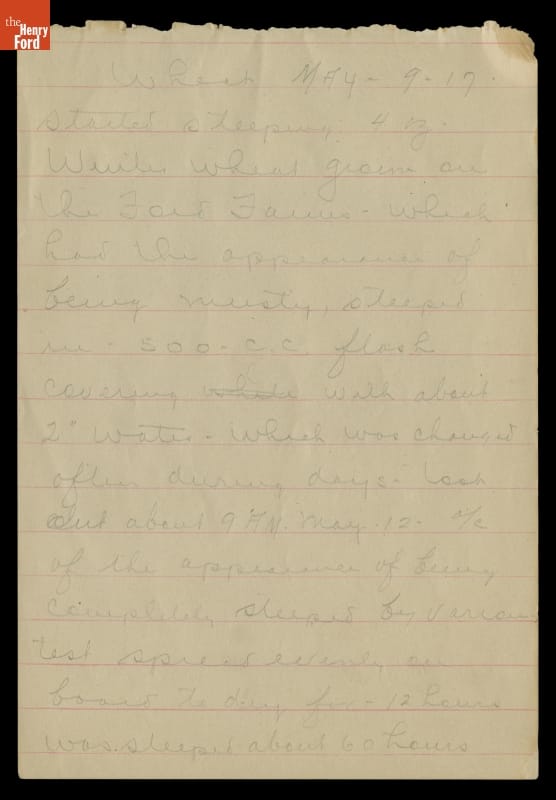 the
Henry
Ford
Wheat MAY - 9 - 17.
started steeping 4 oz.
Winter wheat grown on
the Ford Farms - which
had the appearance of
being musty, steeped
in - 500 - C.C. flask
covering with about
2" water - which was changed
often during days - took
out about 9 AM. May - 12 - a/c
of the appearance of being
completely steeped by various
test spread evenly on
board to dry for - 12 hours
was steeped about 60 hours